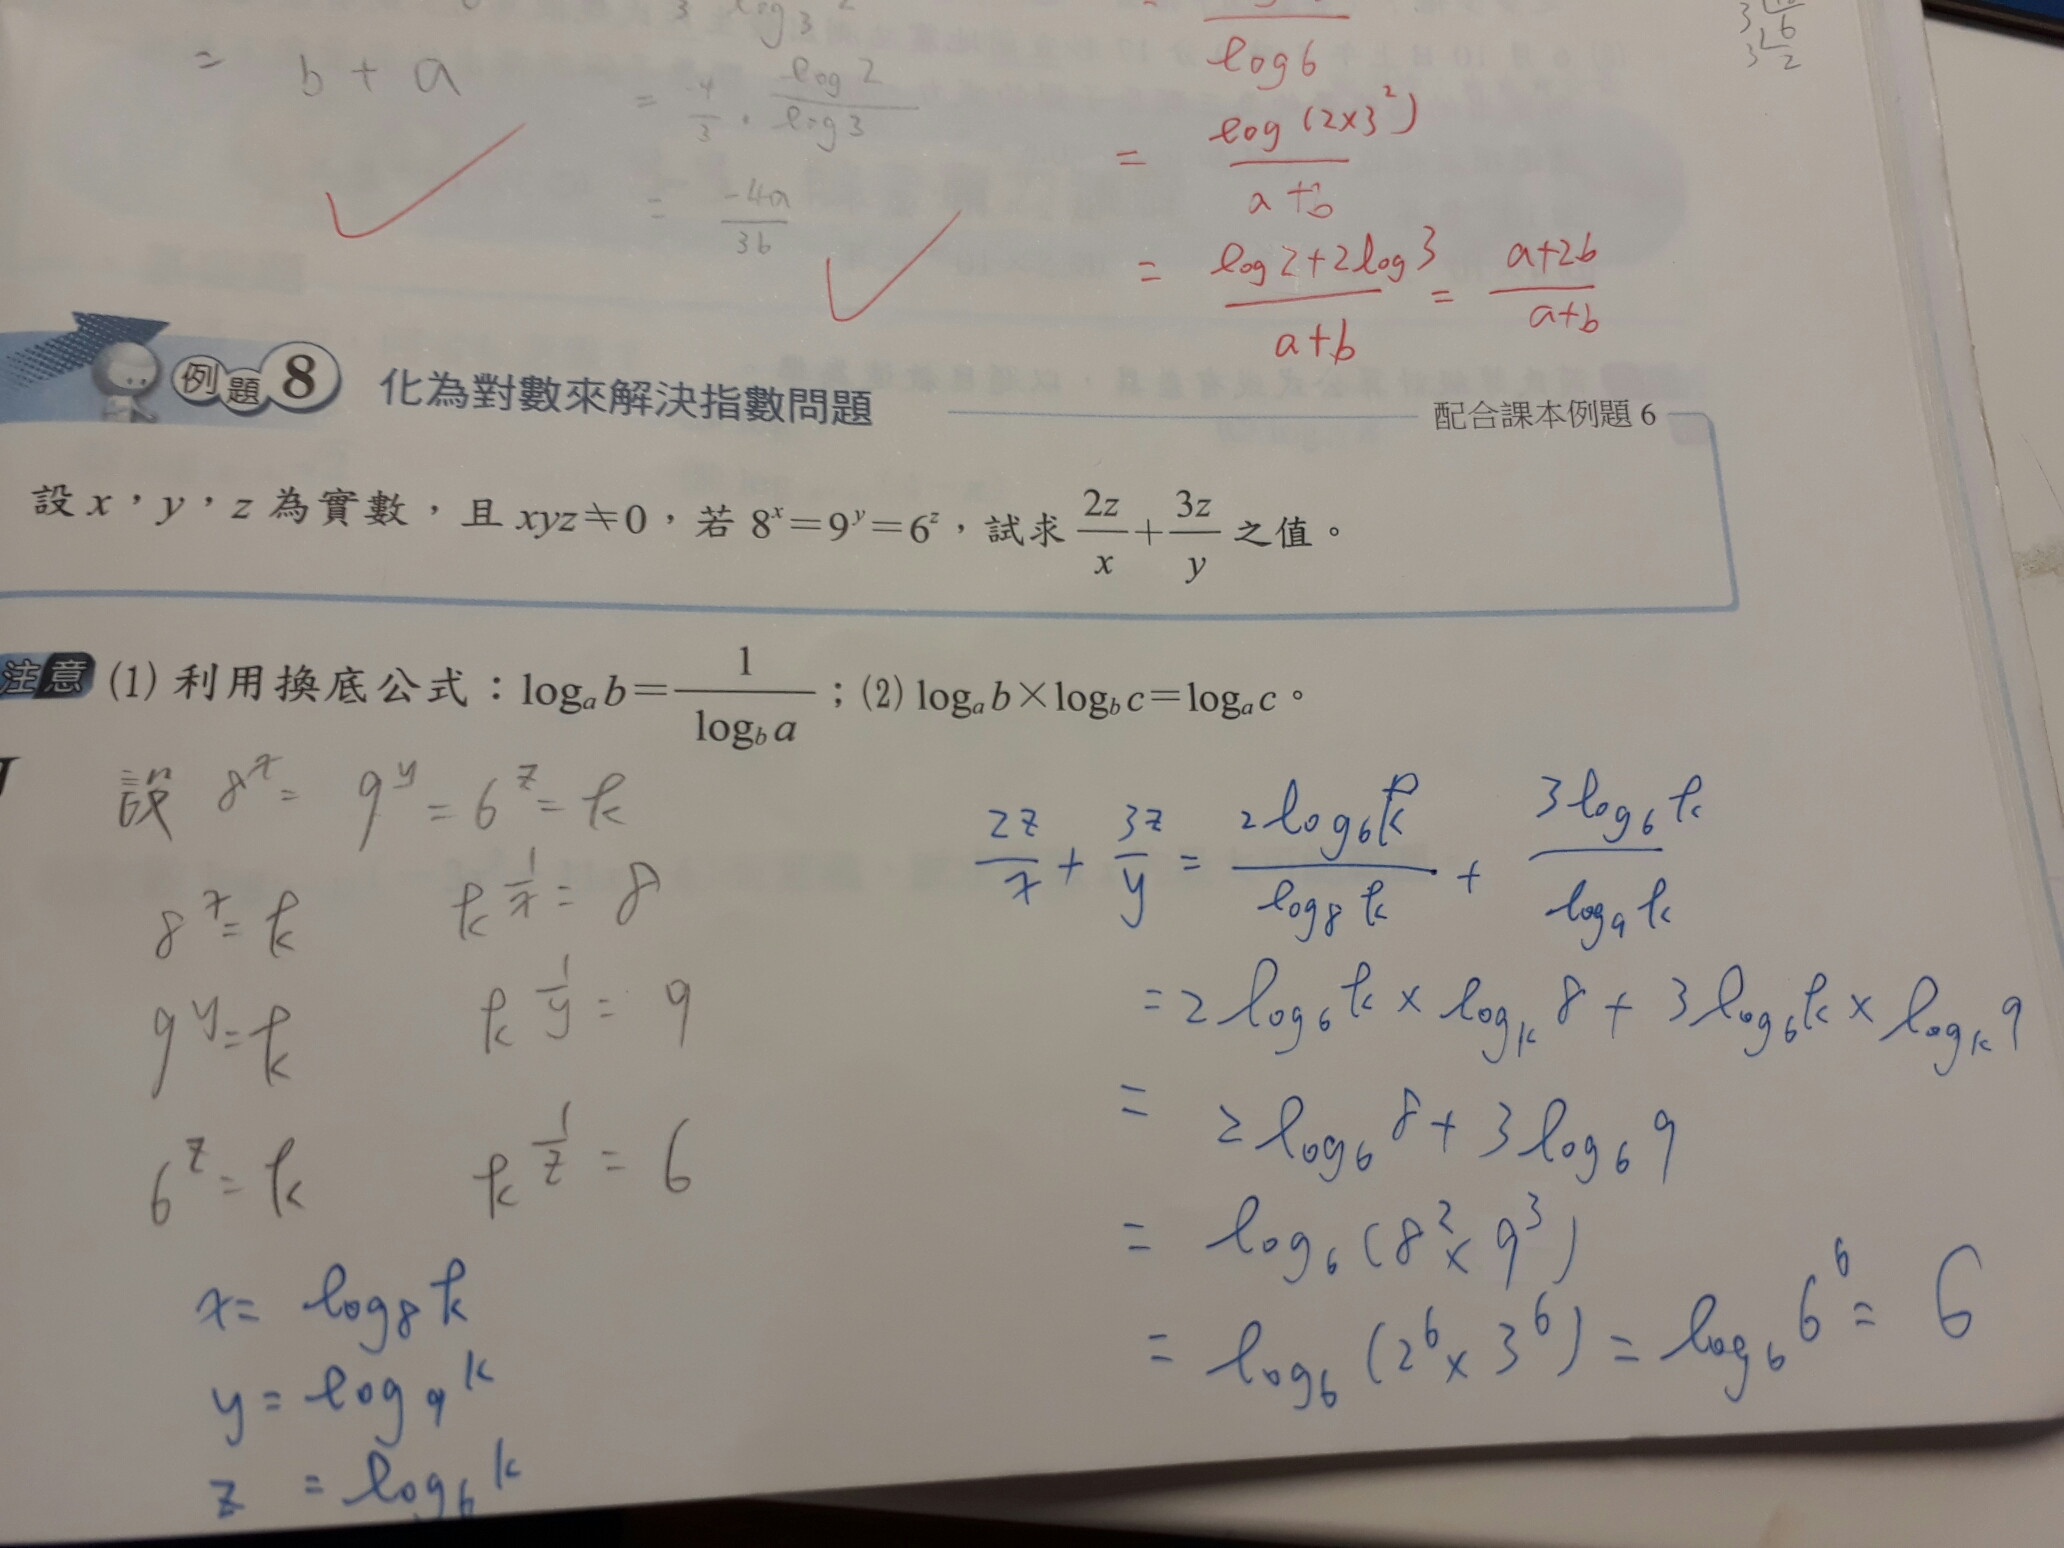 = b + a
= -4/3 · log 2 / log 3
= -4a / 3b
log 6
= log (2×3²) / a+b
= log 2+2log 3 / a+b = a+2b / a+b
3 6
3 2
例題 8 化為對數來解決指數問題 配合課本例題 6
設 x，y，z 為實數，且 xyz≠0，若 8ˣ=9ʸ=6ᶻ，試求 2z/x + 3z/y 之值。
注意 (1) 利用換底公式：logₐ b = 1 / log_b a ；(2) logₐ b×log_b c=logₐ c。
設 8^x = 9^y = 6^z = k
8^x = k k^(1/x) = 8
9^y = k k^(1/y) = 9
6^z = k k^(1/z) = 6
x = log₈ k
y = log₉ k
z = log₆ k
2z/x + 3z/y = 2log₆ k / log₈ k + 3log₆ k / log₉ k
= 2 log₆ k × log_k 8 + 3 log₆ k × log_k 9
= 2 log₆ 8 + 3 log₆ 9
= log₆ (8² × 9³)
= log₆ (2⁶ × 3⁶) = log₆ 6⁶ = 6